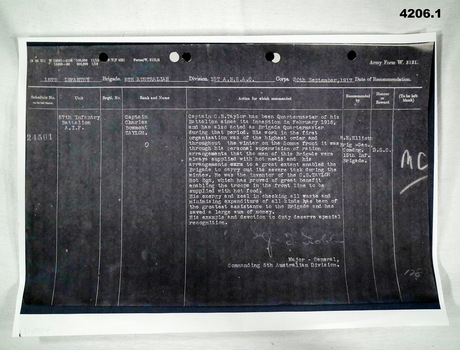 4206.1
Army Form W. 3121.
15TH INFANTRY Brigade. 5TH AUSTRALIAN Division. 1ST A.N.Z.A.C. Corps. 20th September, 1917 Date of Recommendation.
Schedule No. Unit Regtl. No. Rank and Name Action for which commended Recommended by Honour or Reward (To be left blank)
57th Infantry
Battalion
A.I.F.
Captain
Charles
TAYLOR
Captain C.B.Taylor has been Quartermaster of his
Battalion since its inception in February 1916,
and has also acted as Brigade Quartermaster
during this period. His work in the first
organisation was of the highest order and
throughout the winter on the Somme front it was
through his personal supervision of ration
arrangements that the men of this Brigade were
always supplied with hot meals and his
arrangements were to a great extent enabled the
Brigade to carry out its severe task during the
winter. He was the inventor of the C.B.TAYLOR
Hot Box, which has proved of great benefit
enabling the troops in the front line to be
supplied with hot food.
His energy and zeal in checking all waste and
minimising expenditure of all kinds has been of
the greatest assistance to the Brigade and has
saved a large sum of money.
His example and devotion to duty deserve special
recognition.
H.E.Elliott
Brig-Gen.,
Commdg.
15th Inf.
Brigade.
D.S.O.
MC
Major - General,
Commanding 5th Australian Division.
126